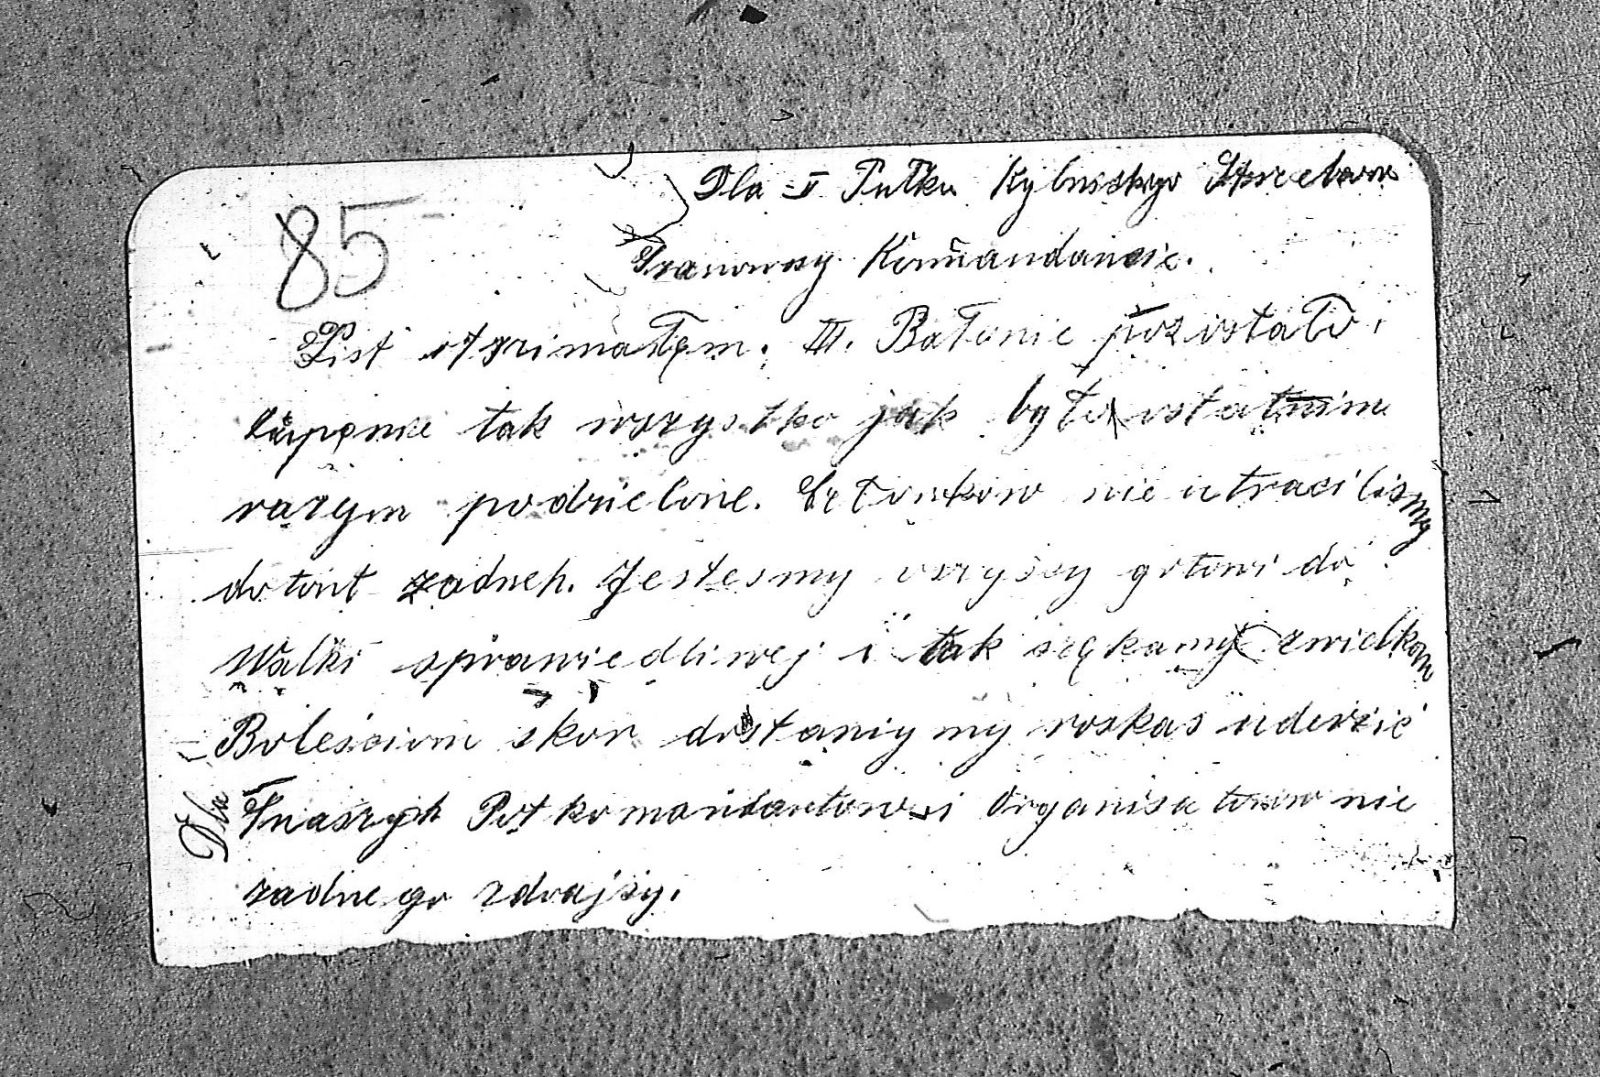 85
Dla II Pułku Rybnickygo Strzelcow
Szanowny Komandancie.
List otzrimałem. III. Batonie pozostało
kąmpanie tak wszystko jak było ostatnim
razym podzielone. Cztonkow nie utracilismy
dotont zadneh. Jestesmy wszyscy gotowi do
Walki sprawiedliwej i tak szękamy zwielkom
Boleściom skor dostaniymy roskas uderzić
Dla Tnaszych Potkomandantow i Organisatorow nie
zadnego zdrajsy.